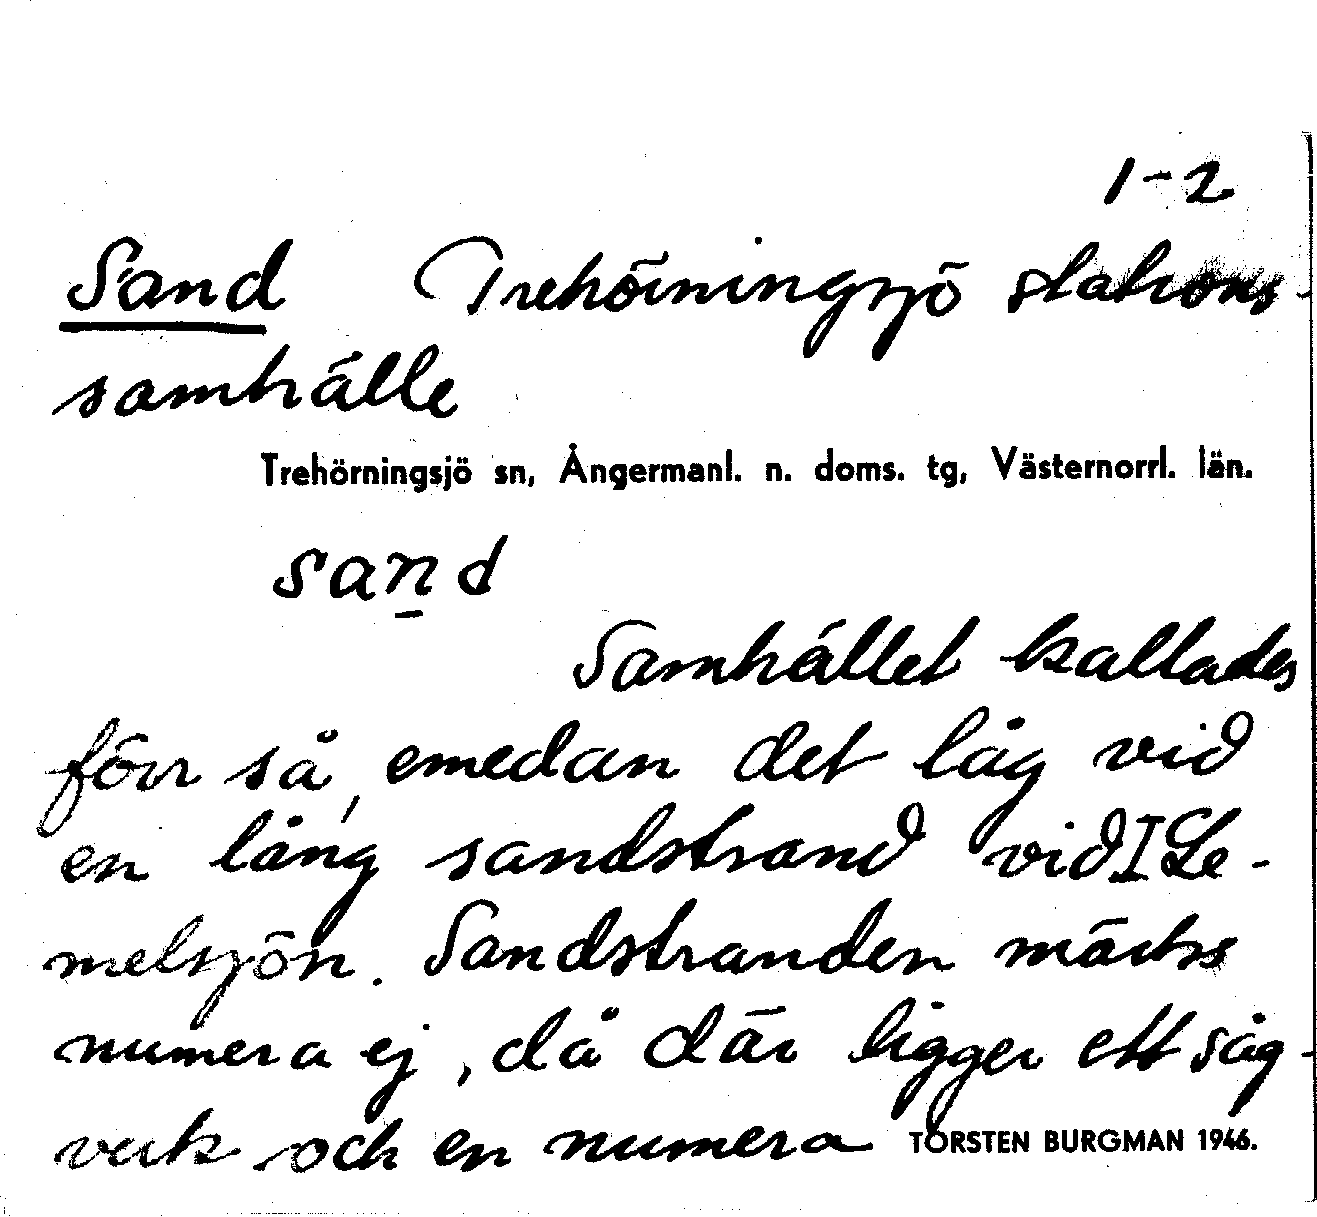 1-2
Sand Trehörningsjö stations-
samhälle
Trehörningsjö sn, Ångermanl. n. doms. tg, Västernorrl. län.
san̲d
Samhället kallades
förr så, emedan det låg vid
en lång sandstrand vid I Le-
melsjön. Sandstranden märks
numera ej, då där ligger ett såg-
verk och en numera TORSTEN BURGMAN 1946.